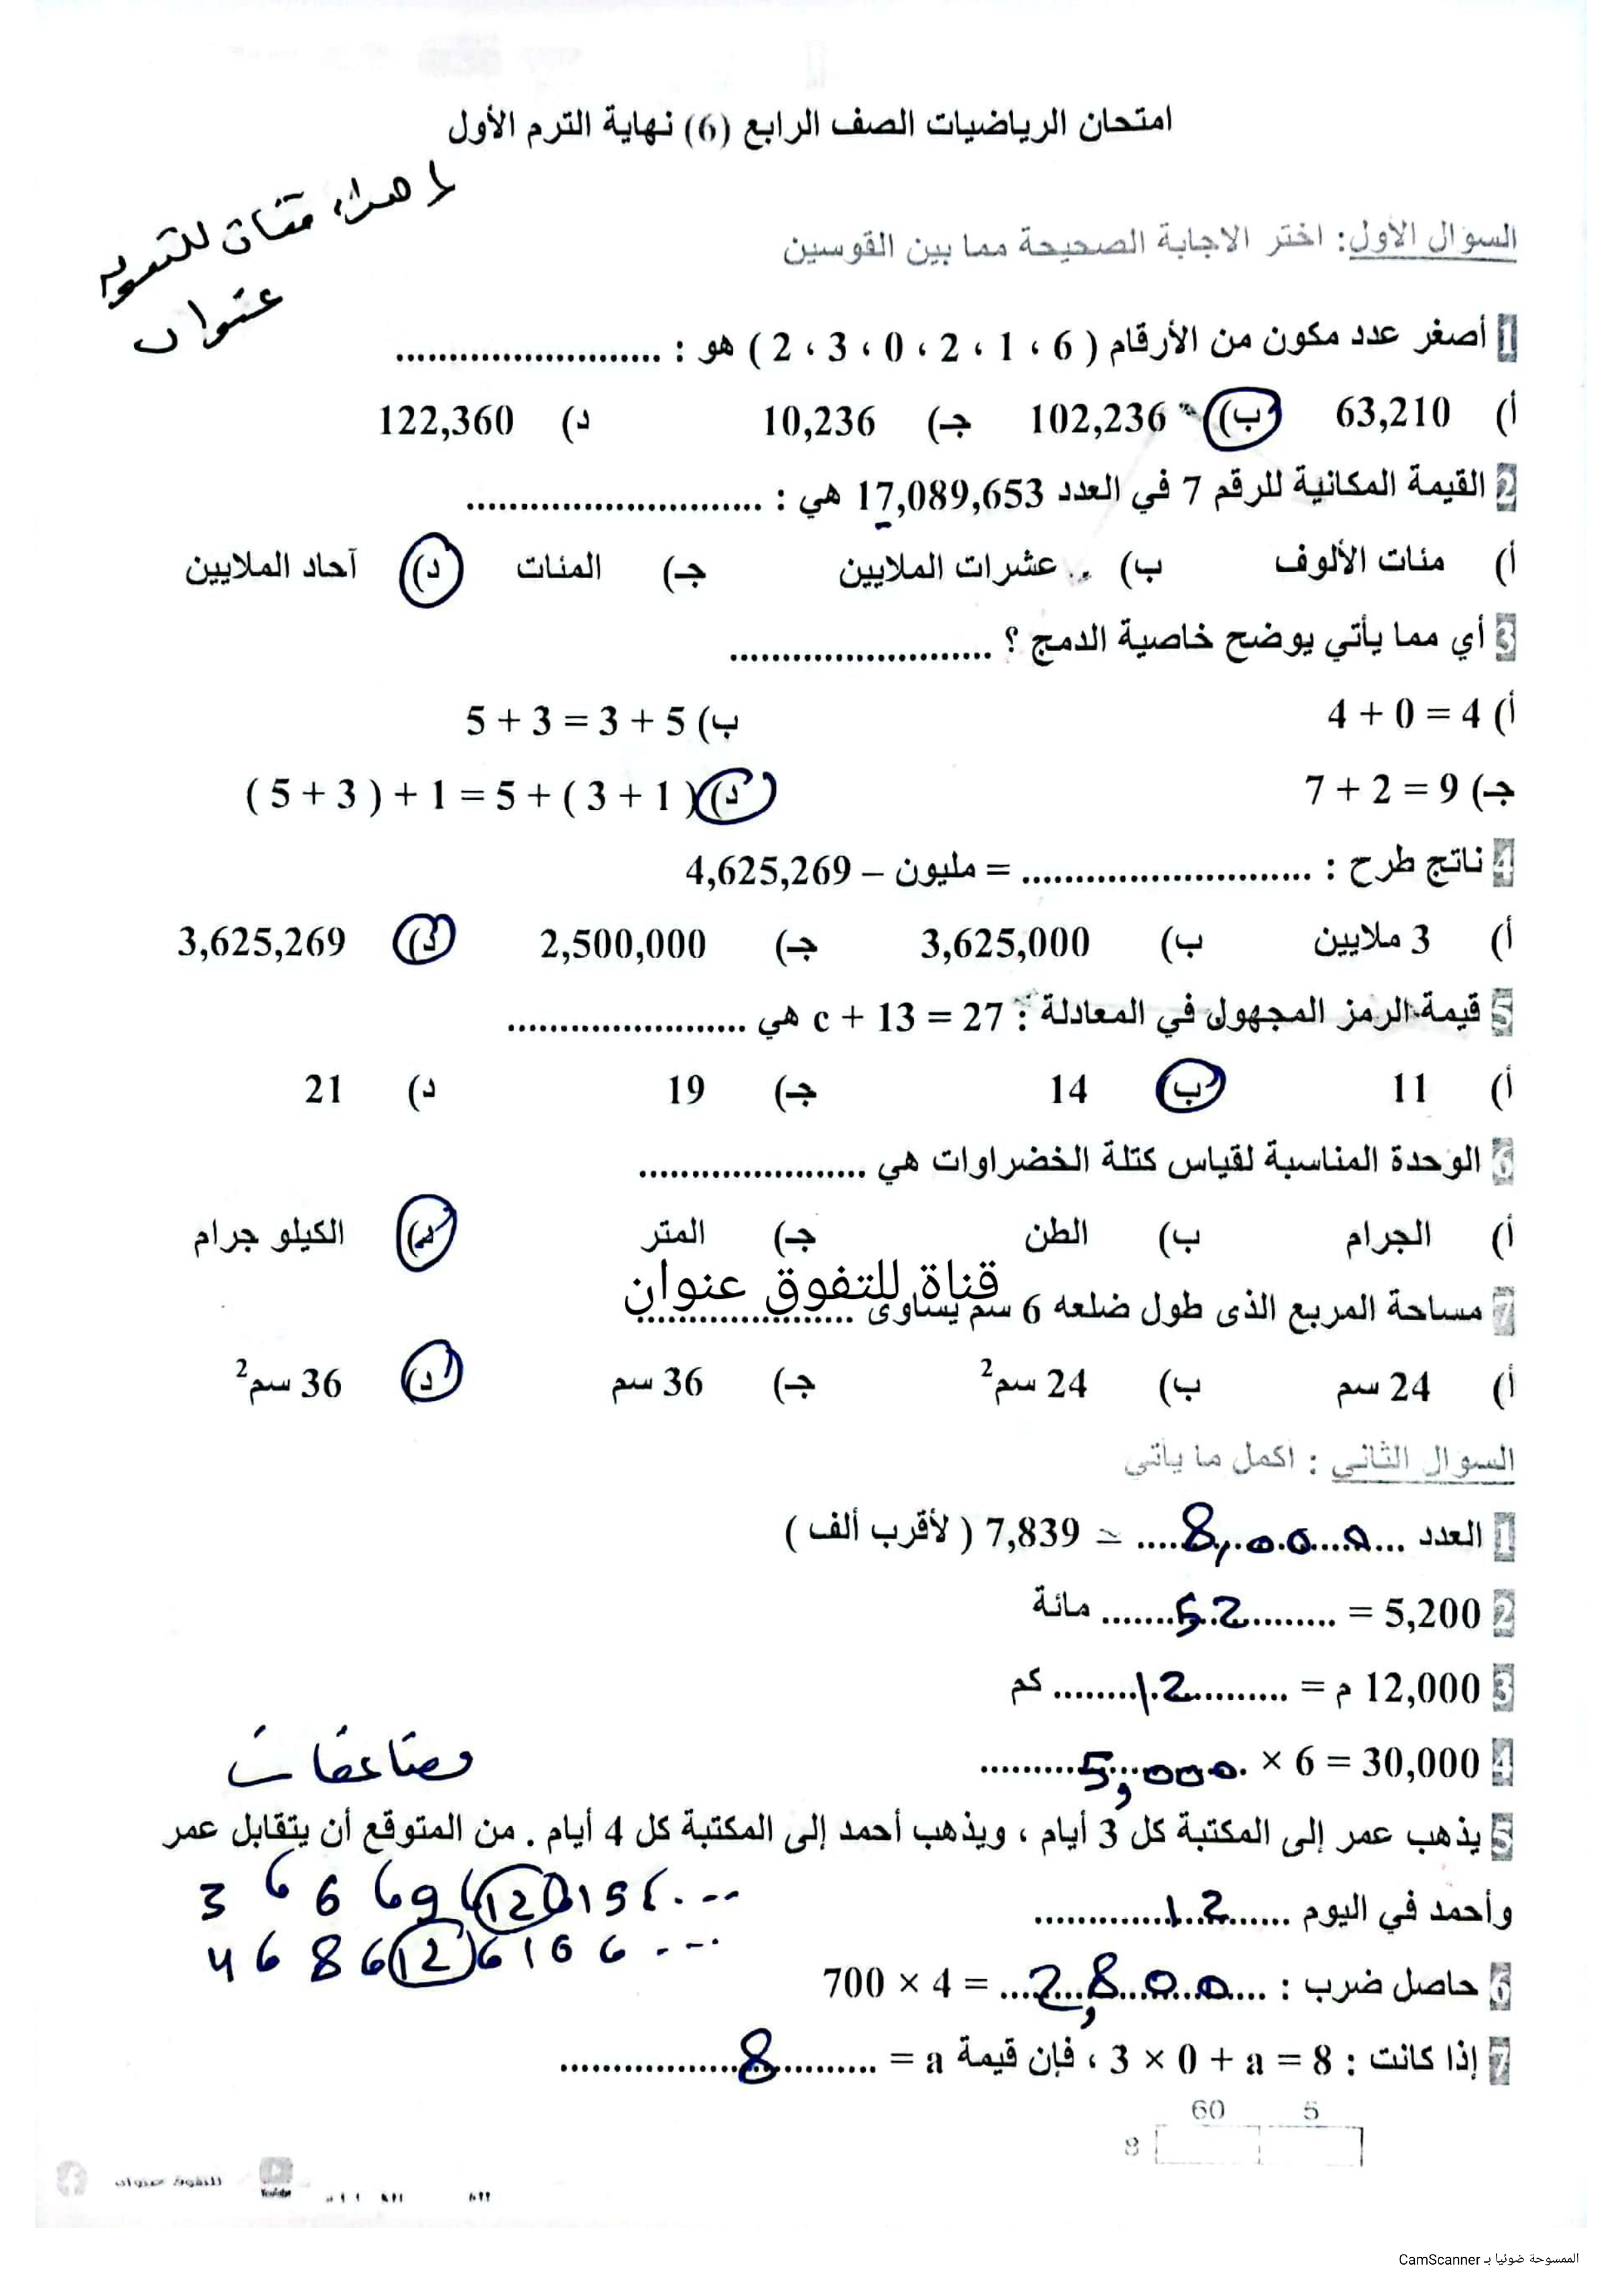 امتحان الرياضيات الصف الرابع (6) نهاية الترم الأول
اهداء قناة للتفوق
عنوان
السؤال الأول: اختر الاجابة الصحيحة مما بين القوسين
1 أصغر عدد مكون من الأرقام ( 6 ، 1 ، 2 ، 0 ، 3 ، 2 ) هو : ........................
أ) 63,210 ب) 102,236 جـ) 10,236 د) 122,360
2 القيمة المكانية للرقم 7 في العدد 17,089,653 هي : ........................
أ) مئات الألوف ب) عشرات الملايين جـ) المئات د) آحاد الملايين
3 أي مما يأتي يوضح خاصية الدمج ؟ ........................
أ) 4 + 0 = 4 ب) 5 + 3 = 3 + 5
جـ) 7 + 2 = 9 د) ( 5 + 3 ) + 1 = 5 + ( 3 + 1 )
4 ناتج طرح : ........................ = مليون – 4,625,269
أ) 3 ملايين ب) 3,625,000 جـ) 2,500,000 د) 3,625,269
5 قيمة الرمز المجهول في المعادلة : c + 13 = 27 هي ........................
أ) 11 ب) 14 جـ) 19 د) 21
6 الوحدة المناسبة لقياس كتلة الخضراوات هي ........................
أ) الجرام ب) الطن جـ) المتر د) الكيلو جرام
قناة للتفوق عنوان
7 مساحة المربع الذى طول ضلعه 6 سم يساوى ........................
أ) 24 سم ب) 24 سم² جـ) 36 سم د) 36 سم²
السؤال الثاني : اكمل ما يأتى
1 العدد ...8,000... ≃ 7,839 ( لأقرب ألف )
2 5,200 = ...52... مائة
3 12,000 م = ...12... كم
4 ...5,000... × 6 = 30,000
مضاعفات
5 يذهب عمر إلى المكتبة كل 3 أيام ، ويذهب أحمد إلى المكتبة كل 4 أيام . من المتوقع أن يتقابل عمر
3 ، 6 ، 9 ، 12 ، 15 ، ...
وأحمد في اليوم ...12...
4 ، 8 ، 12 ، 16 ، ...
6 حاصل ضرب : ...2,800... = 700 × 4
7 إذا كانت : 3 × 0 + a = 8 ، فإن قيمة a = ...8...
60 5
8
للتفوق عنوان
YouTube
الممسوحة ضوئيا بـ CamScanner